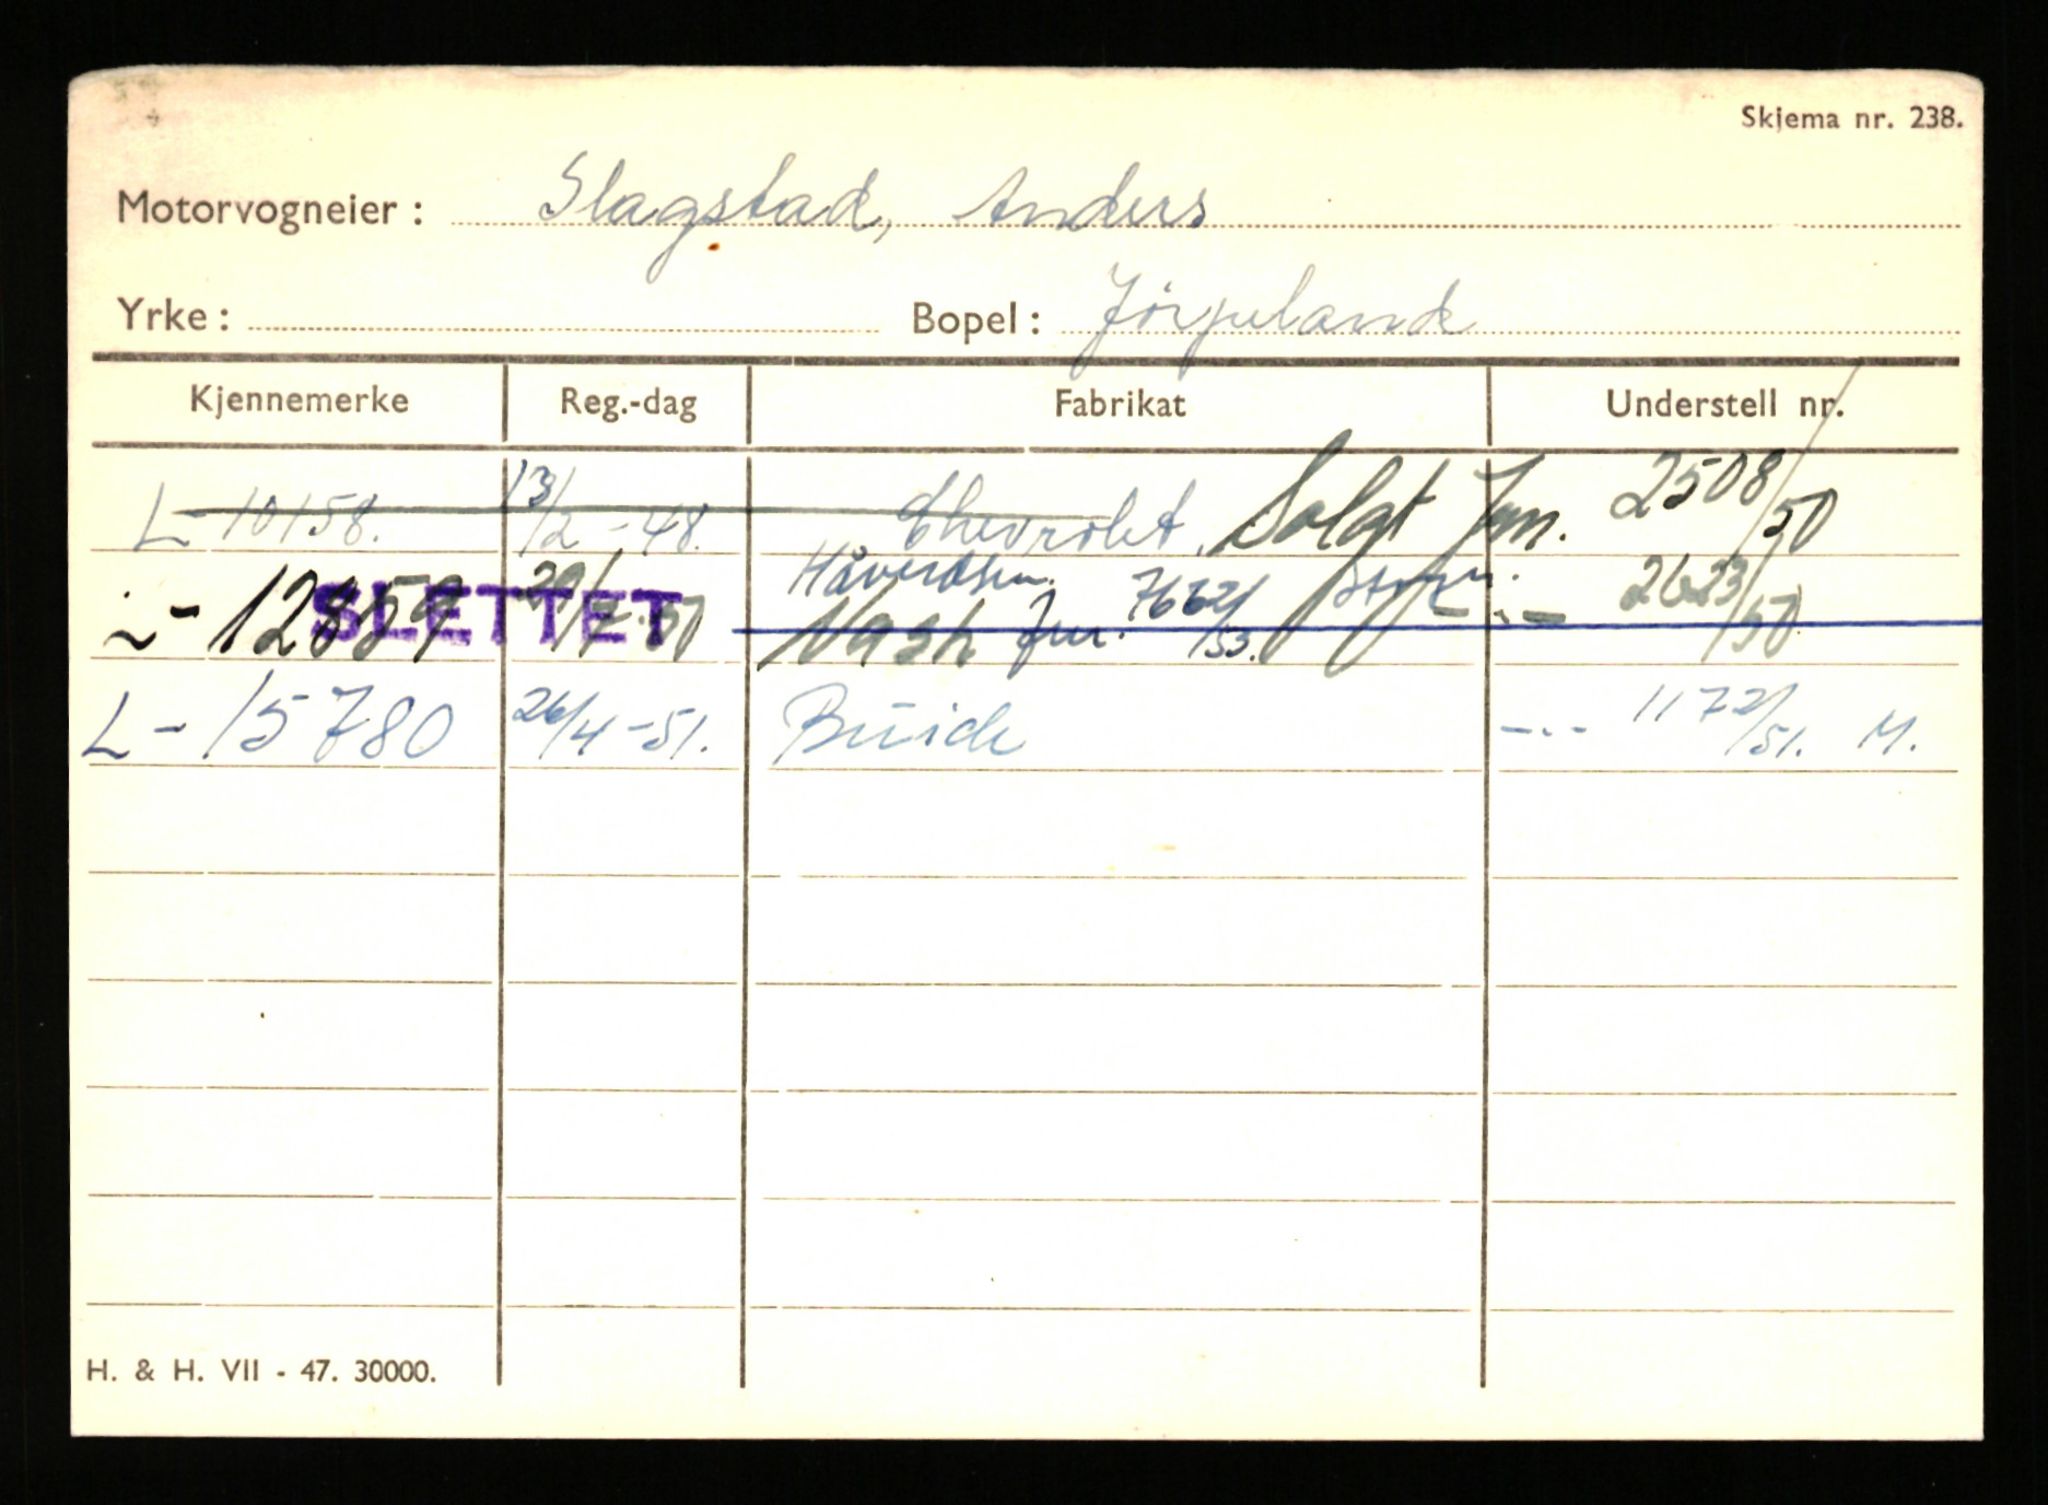 Skjema nr. 238.
Motorvogneier: Slagstad, Anders
Yrke: Bopel: Jörpeland
Kjennemerke Reg.-dag Fabrikat Understell nr.
L-10158. 13/2-48. Chevrolet. Solgt Jrn. 2508/50
7662/53. 2623/50
-12859 SLETTET Nash Jnr.
L-15780 26/4-51. Buick -..- 1172/51. M.
H. & H. VII - 47. 30000.